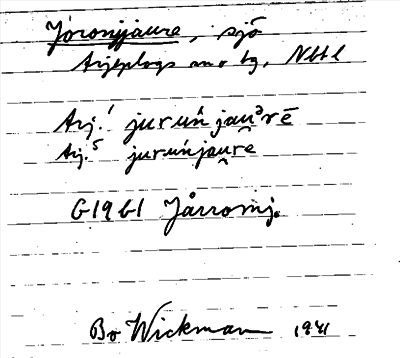 Joronjjaure, sjö
Arjeplogs sn o tg, Nbtl
Arj.¹ juruṅjauᵊrē
Arj.⁵ juruṅjaurē
G1961 Jårromj.
Bo Wickman 1941